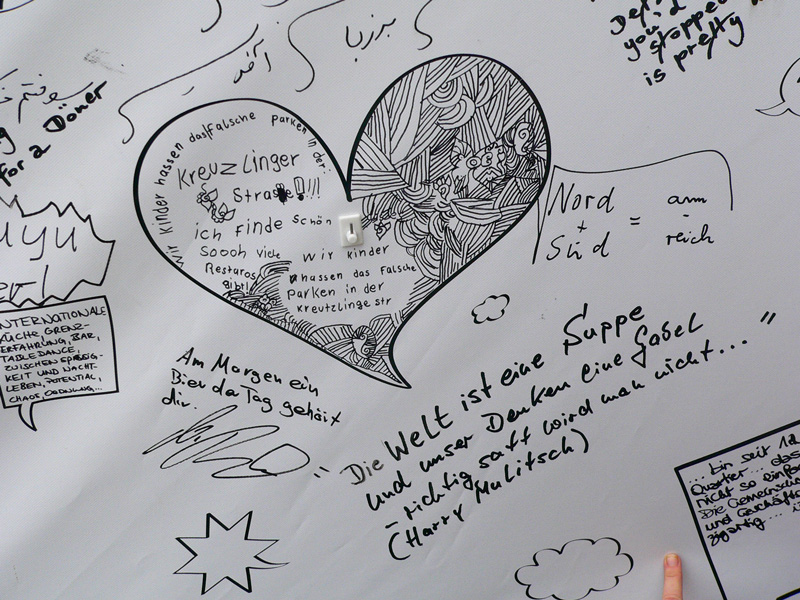 برزیا
you'd
stopped
is pretty
for a Döner
wir Kinder hassen das Falsche Parken in der
Kreuzlinger
Strasse!!!!
ich finde schön
Soooh viele
Restaros
gibt!
wir Kinder
hassen das Falsche
Parken in der
Kreutzlinge str
Nord arm
+ = -
Süd reich
INTERNATIONALE
KÜCHE, GRENZ-
ERFAHRUNG, BAR,
TABLEDANCE,
ZWISCHEN
KEIT UND NACHT-
LEBEN, POTENTIAL,
CHAOS, ORDNUNG...
Am Morgen ein
Bier da Tag gehört
dir.
"Die Welt ist eine Suppe
und unser Denken eine Gabel
- richtig satt wird man nicht..."
(Harry Mulitsch)
... bin seit 12
Quartier... das
nicht so einfa
Die Gemeinsch
und Geschäft